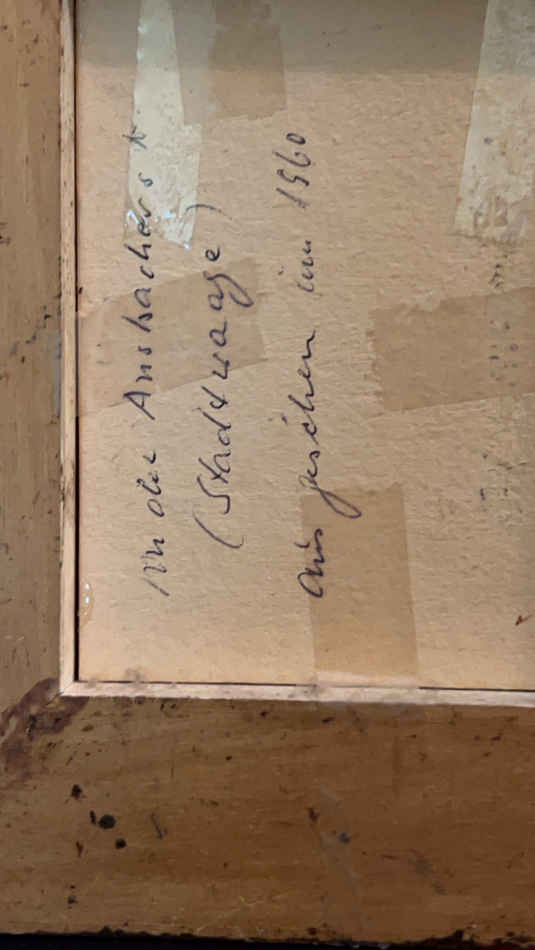 in der Ansbacherst
(Stadtwaage)
Aus gesehen im 1960